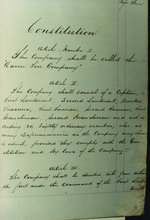 Constitution
Article Number I
This Company shall be called the
Fire Company.
Article II
The Company shall consist of a Captain,
First Lieutenant, Second Lieutenant, Secretary,
Treasurer, First Foreman, Second Foreman, First
Branchman, Second Branchman and
eighty ordinary members, also as
many Supernumeraries as the Company may
admit, provided they comply with the Con-
stitution and By laws of the Company.
Article III
The Company shall be divided into
the first under the command of the First